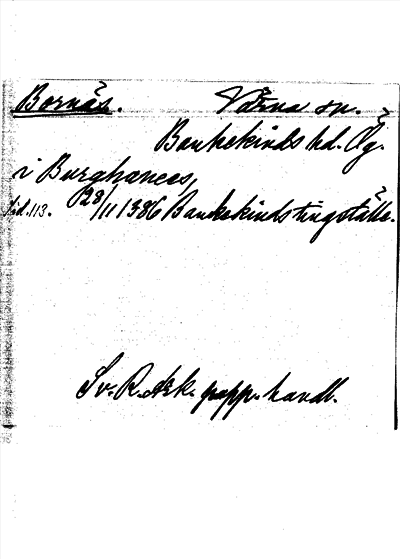 Bornäs. Värna sn.
Bankekinds hd. Ög.
i Burghanæs,
sid. 113. 28/11 1386 Bankekinds tingställe.
Sv. R. Ark. papp. handl.